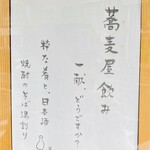 蕎麦屋飲み
一献、どうですか？
粋な肴と、日本酒
焼酎のそば湯割り